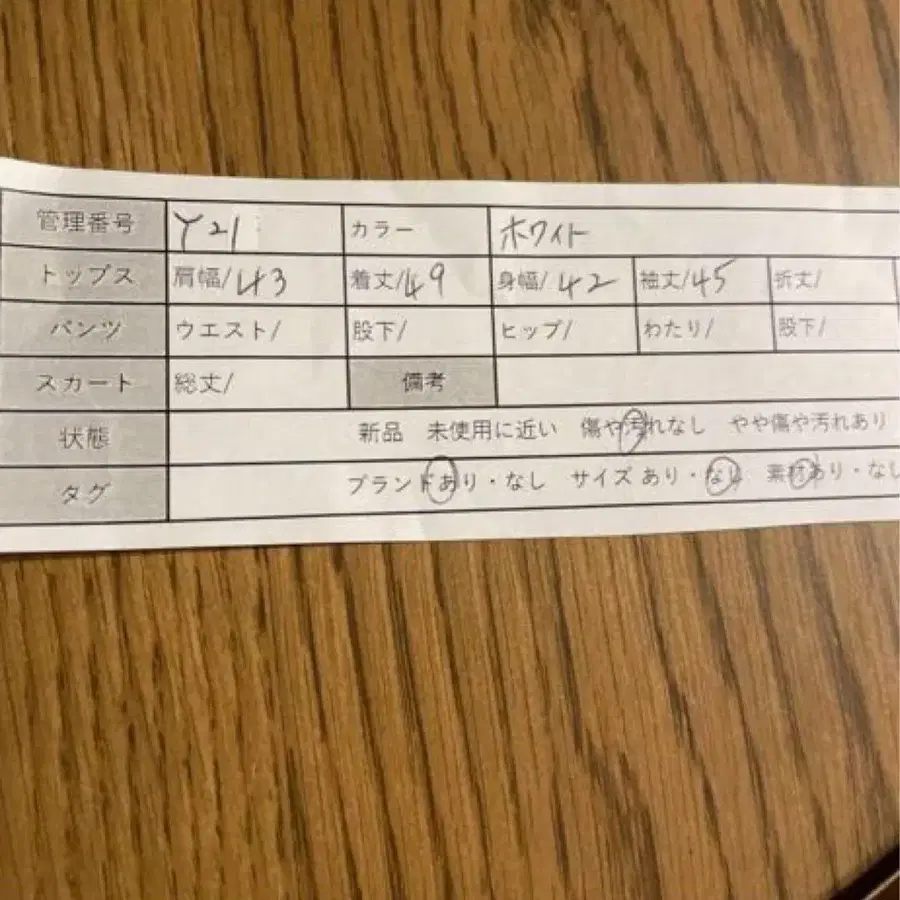 管理番号 Y21 カラー ホワイト
トップス 肩幅/43 着丈/49 身幅/42 袖丈/45 折丈/
パンツ ウエスト/ 股下/ ヒップ/ わたり/ 股下/
スカート 総丈/ 備考
状態 新品 未使用に近い 傷や汚れなし やや傷や汚れあり
タグ ブランドあり・なし サイズ あり・なし 素材あり・なし